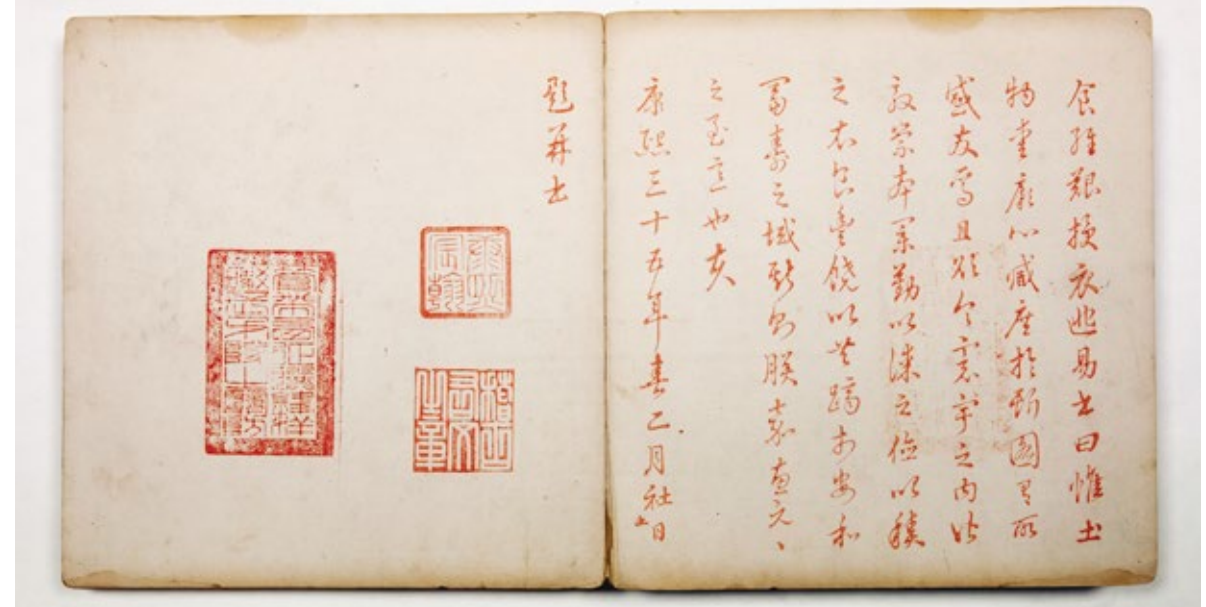 食維艱授衣匪易書曰惟土
物愛厥心臧庶於斯圖有所
感發焉且欲令寰宇之內皆
敦崇本業勤以謀之儉以積
之衣食豐饒以共躋於安和
富壽之域斯則朕嘉惠元〻
之至意也夫
康熙三十五年春二月社日
題并書
康熙宸翰
稽古右文之章